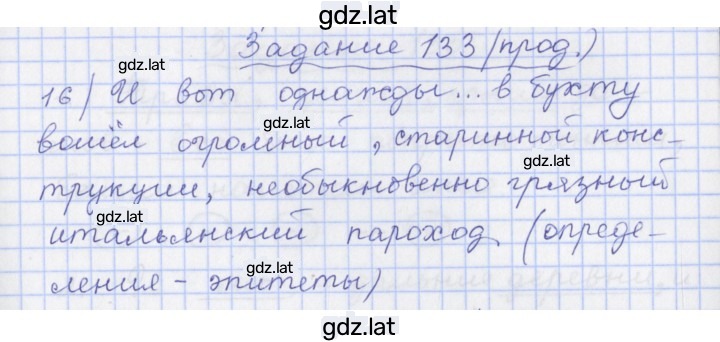 gdz.lat
Задание 133 (прод.)
gdz.lat
16) И вот однажды... в бухту
gdz.lat
вошёл огромный, старинной конс-
gdz.lat
трукции, необыкновенно грязный
gdz.lat
gdz.lat
итальянский пароход (опреде-
gdz.lat
ления - эпитеты)
gdz.lat